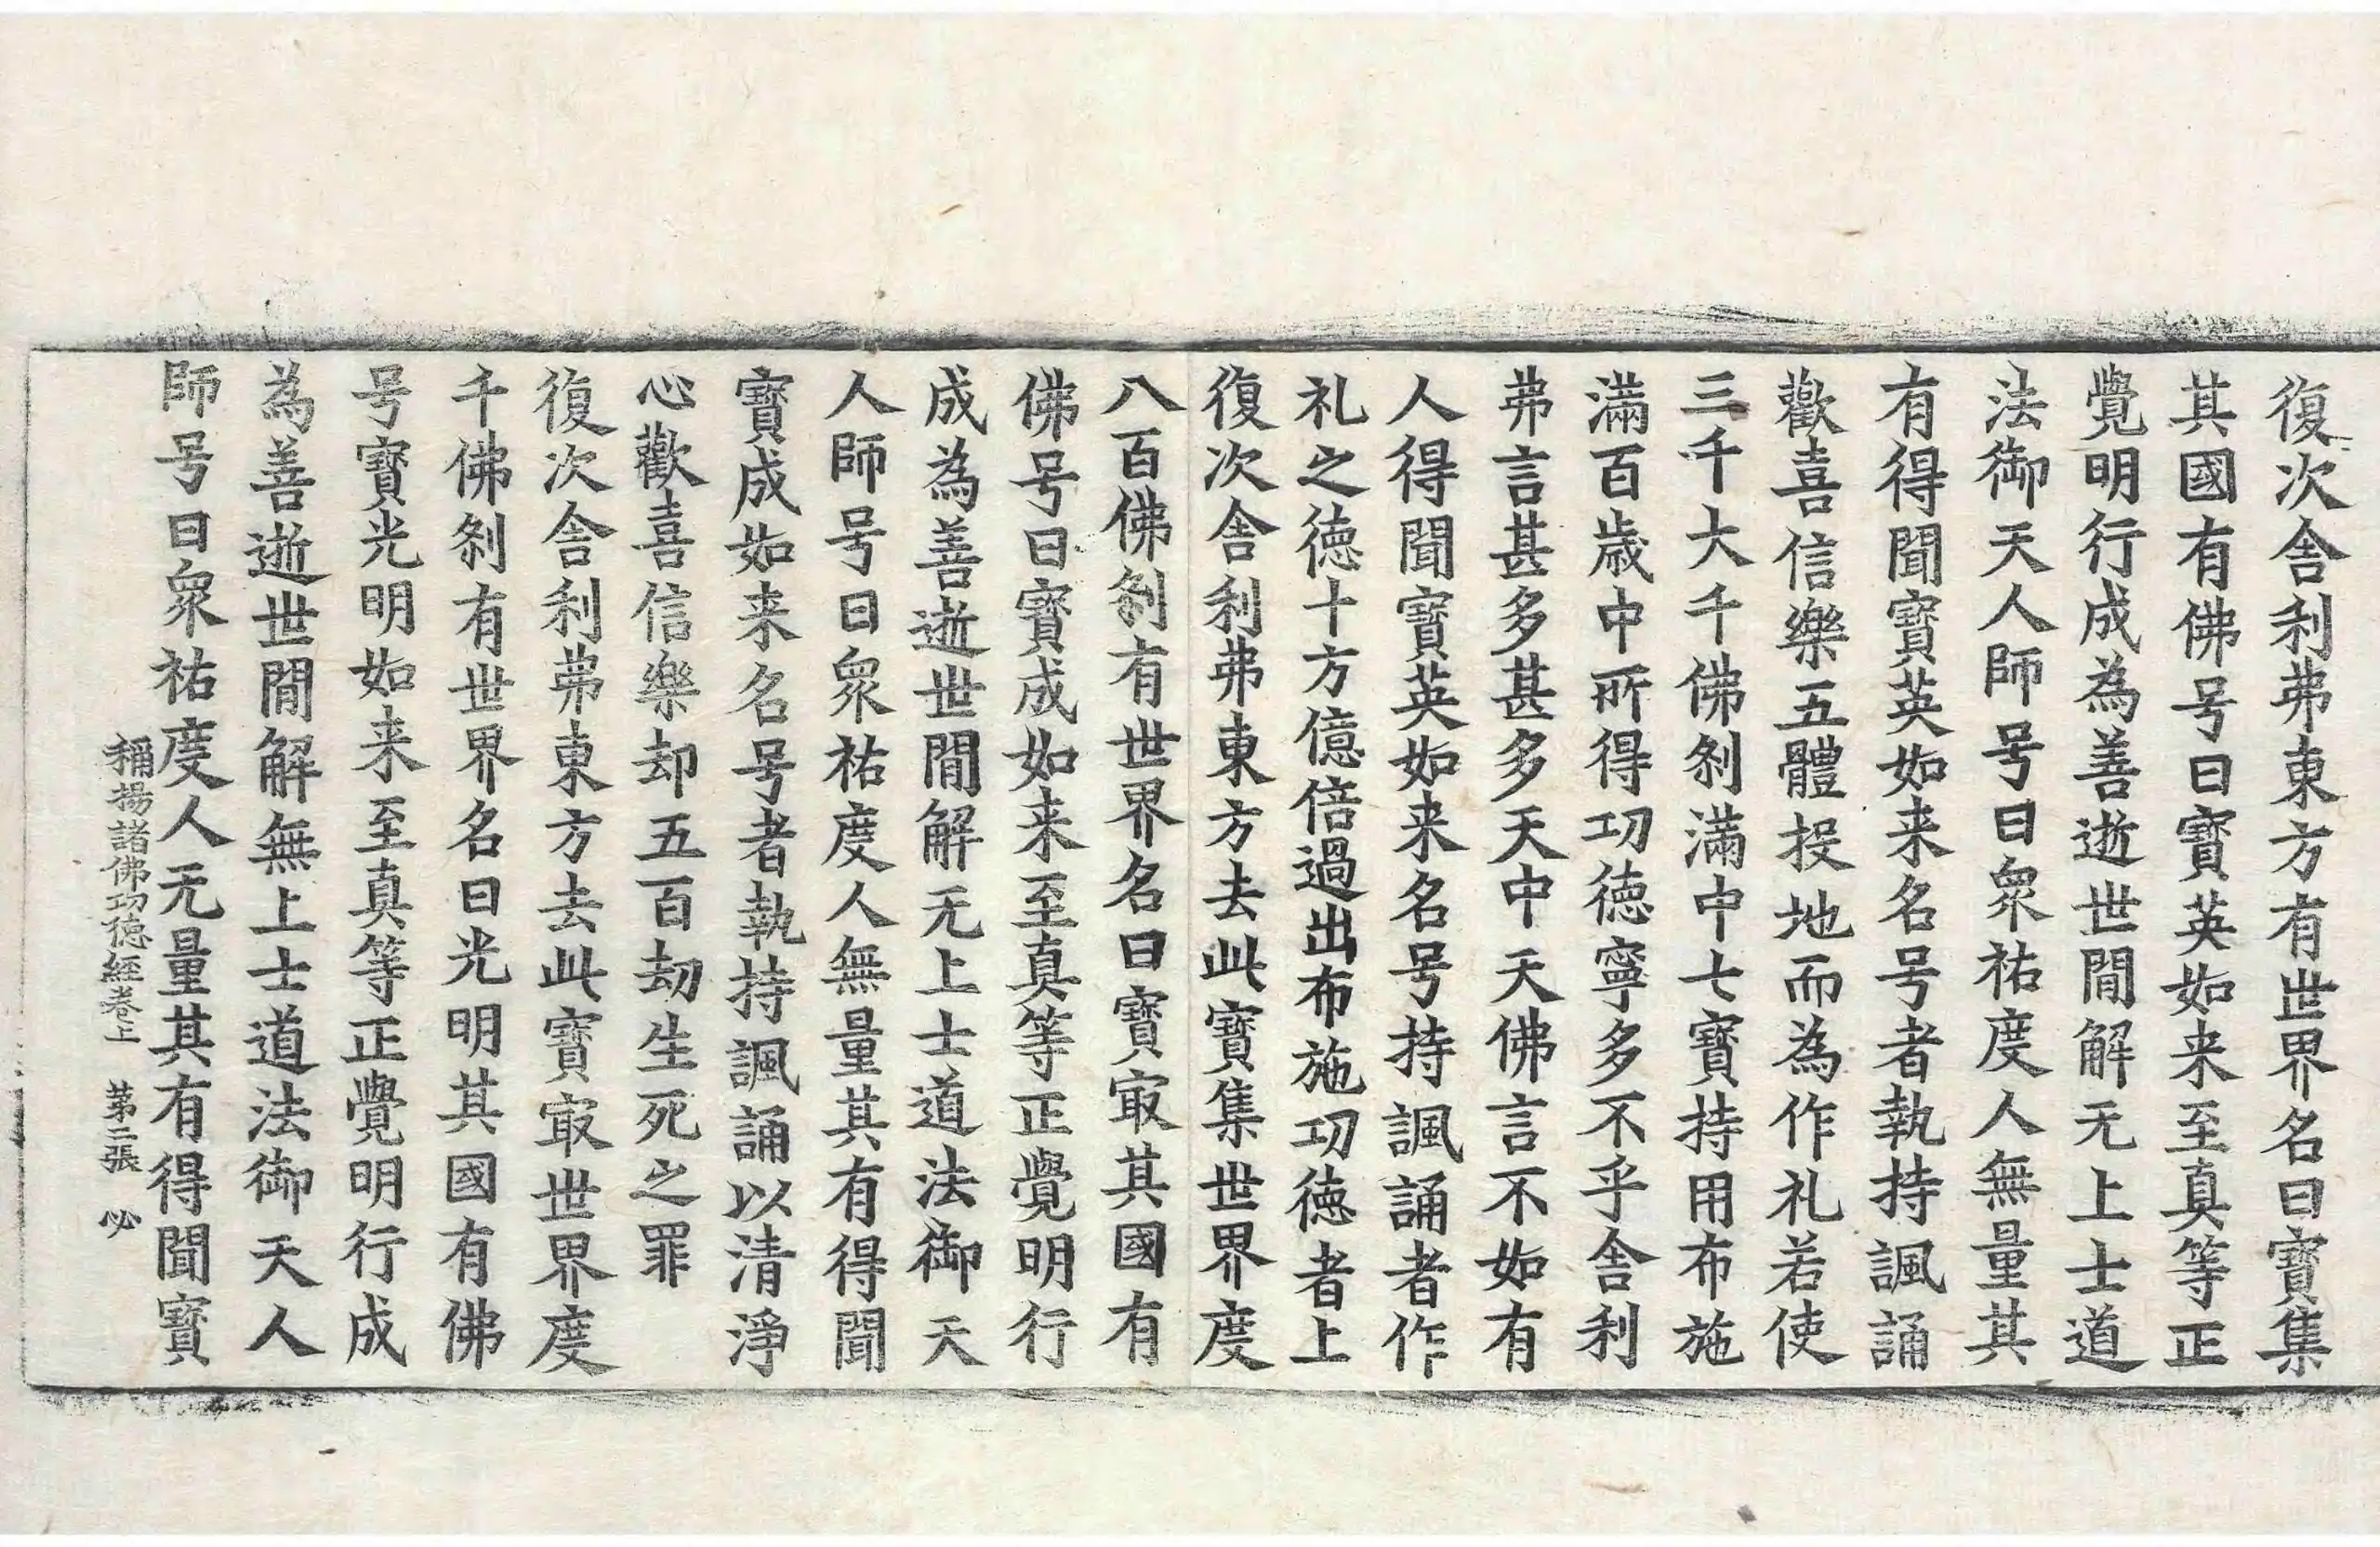 復次舎利弗東方有世界名曰寶集
其國有佛号曰寶英如来至真等正
覺明行成為善逝世間解无上士道
法御天人師号曰衆祐度人無量其
有得聞寶英如来名号者執持諷誦
歡喜信樂五體投地而為作礼若使
三千大千佛刹滿中七寶持用布施
滿百歳中所得功德寧多不乎舎利
弗言甚多甚多天中天佛言不如有
人得聞寶英如来名号持諷誦者作
礼之德十方億倍過出布施功德者上
復次舎利弗東方去此寶集世界度
八百佛刹有世界名曰寶㝡其國有
佛号曰寶成如来至真等正覺明行
成為善逝世間解无上士道法御天
人師号曰衆祐度人無量其有得聞
寶成如来名号者執持諷誦以清淨
心歡喜信樂却五百劫生死之罪
復次舎利弗東方去此寶㝡世界度
千佛刹有世界名曰光明其國有佛
号寶光明如来至真等正覺明行成
為善逝世間解無上士道法御天人
師号曰衆祐度人无量其有得聞寶
稱揚諸佛功德經卷上 第二張 必